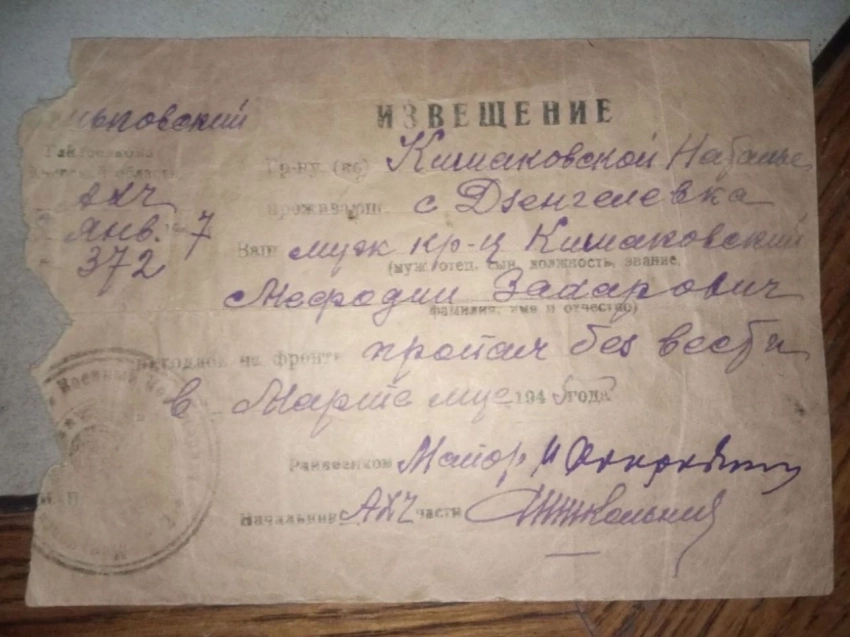 ИЗВЕЩЕНИЕ
ьковский
Райвоенкома
области
АХЧ
Янв. 1947
372
Гр-ну (ке) Кишаковской Наталье
проживающ. с Дзенгелевка
Ваш муж кр-ц Кишаковский
(муж, отец, сын, должность, звание,
Мефодий Захарович
фамилия, имя и отчество)
находясь на фронте пропал без вести
в Марте м-це 194 года
Райвоенком Майор
Начальник АХЧ части
Военный